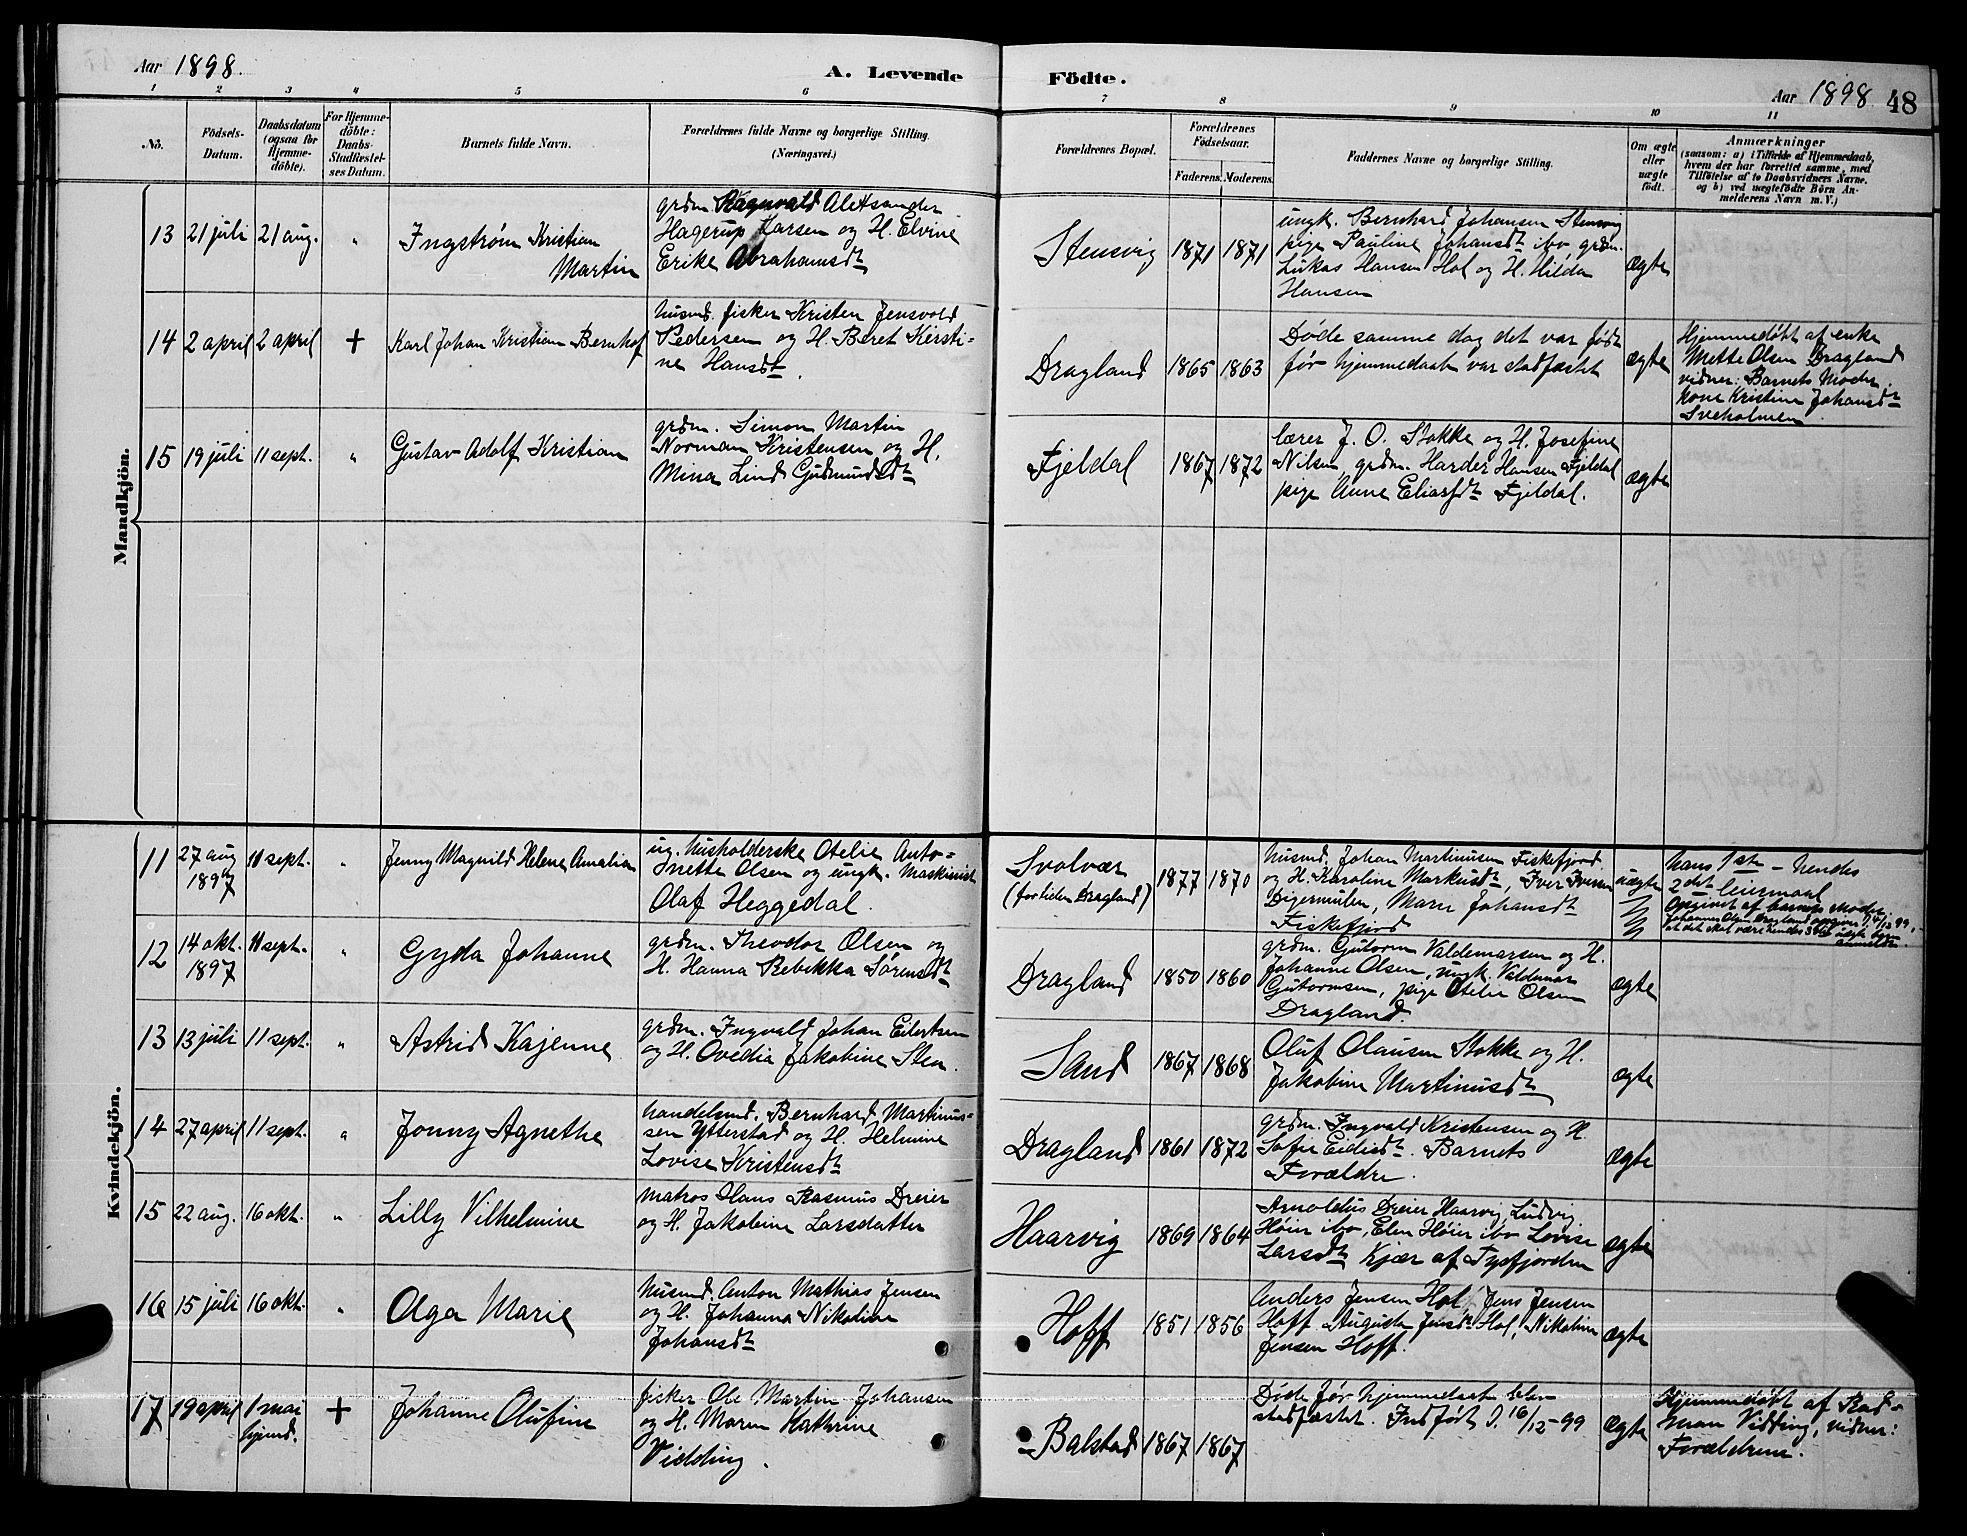 Aar 1898. A. Levende Födte. Aar 1898 48
1 2 3 4 5 6 7 8 9 10 11
No.
Födsels-
Datum.
Daabsdatum
(ogsaa for
Hjemme-
döbte).
For Hjemme-
döbte:
Daabs-
Stadfæstel-
ses Datum.
Barnets fulde Navn.
Forældrenes fulde Navne og borgerlige Stilling.
(Næringsvei.)
Forældrenes Bopæl.
Forældrenes
Födselsaar.
Faderens. Moderens.
Faddernes Navne og borgerlige Stilling.
Om ægte
eller
uægte
födt.
Anmærkninger
(saasom: a) i Tilfælde af Hjemmedaab,
hvem der har forrettet samme, med
Tilföielse af to Daabsvidners Navne,
og b) ved uægtefödte Börn An-
melderens Navn m. V.)
Mandkjön.
13 21 juli 21 aug. "
Ingstrøm Kristian
Martin
grdm. Ragnvald Aleksander
Hagerup Larsen og H. Elvine
Erike Abrahamsdt
Stensvig 1871 1871
ungk. Bernhard Johansen Stensvig
pige Pauline Johansdt ibo grdm.
Lukas Hansen Hol og H. Hilda
Hansen
ægte
14 2 april 2 april +
Karl Johan Kristian Bernhof
husmd. fisker Kristen Jensvold
Pedersen og H. Beret Kirsti=
ne Hansdt.
Dragland 1865 1863
Døde samme dag det var født
før hjemmedaab var stadfæstet
ægte
Hjemmedøbt af enke
Mette Olsen Dragland
vidner: Barnets Moder.
kone Kristine Johansdt
Sveholmen.
15 19 juli 11 sept. "
Gustav Adolf Kristian
grdm. Simon Martin
Norman Kristensen og H.
Mina Lind Gudmundsdt
Fjeldal 1867 1872
lærer J. O. Stokke og H. Josefine
Nilsen, grdm. Harder Hansen Fjeldal
pige Anne Eliasdt Fjeldal.
ægte
Kvindekjön.
11 27 aug 1897 11 sept. "
Jenny Magnild Helene Amalia
ug. husholderske Otelie Anto=
nette Olsen og ungk. Maskinist
Olaf Heggedal.
Svolvær
(for tiden Dragland)
1877 1870
husmd. Johan Martinusen Fiskefjord
og H. Karoline Markusdt, Iver Iversen
Digermulen, Maren Johansdt
Fiskefjord
uægte
hans 1ste – hendes
2det leiermaal
Opgivet af barnets Moder
Johannes Olsen Dragland
at det skal være hendes 3die uægte barn
12 14 okt. 1897 11 sept. "
Gyda Johanne
grdm. Theodor Olsen og
H. Hanna Rebikka Sørensdt
Dragland 1850 1860
grdm. Gutorm Valdemarsen og H.
Johanne Olsen, ungk. Valdemar
Gutormsen, pige Otelie Olsen
Dragland.
ægte
13 13 juli 11 sept. "
Astrid Kajenne
grdm. Ingvald Johan Eilertsen
og H. Ovedia Jakobine Sten.
Sand 1867 1868
Oluf Olausen Stokke og H.
Jakobine Martinusdt
ægte
14 27 april 11 sept. "
Jonny Agnethe
handelsmd. Bernhard Martinus-
sen Ytterstad og H. Helmine
Lovise Kristensdt
Dragland 1861 1872
grdm. Ingvald Kristensen og H.
Sofie Eidisdt. Barnets
Forældre.
ægte
15 22 aug. 16 okt. "
Lilly Vilhelmine
matros Hans Rasmus Dreier
og H. Jakobine Larsdatter
Haarvig 1869 1864
Arnoldus Dreier Haarvig, Ludvig
Høier ibo, Elen Høier ibo Lovise
Larsdt Kjær af Tysfjorden
ægte
16 15 juli 16 okt. "
Olga Marie
husmd. Anton Mathias Jensen
og H. Johanna Nikoline
Johansdt
Hoff 1851 1856
Anders Jensen Hol, Jens Jensen
Hoff. Augusta Jensdt Hol, Nikoline
Jensen Hoff.
ægte
17 19 april 1 mai
hjemd.
+
Johanne Olufine
fisker Ole Martin Johansen
og H. Maren Kathrine
Vidding.
Balstad 1867 1867
Døde før hjemmedaab blev
stadfæstet. Indført d. 16/12-99
ægte
Hjemmedøbt af Rad=
man Vidding, vidner:
Forældrene.